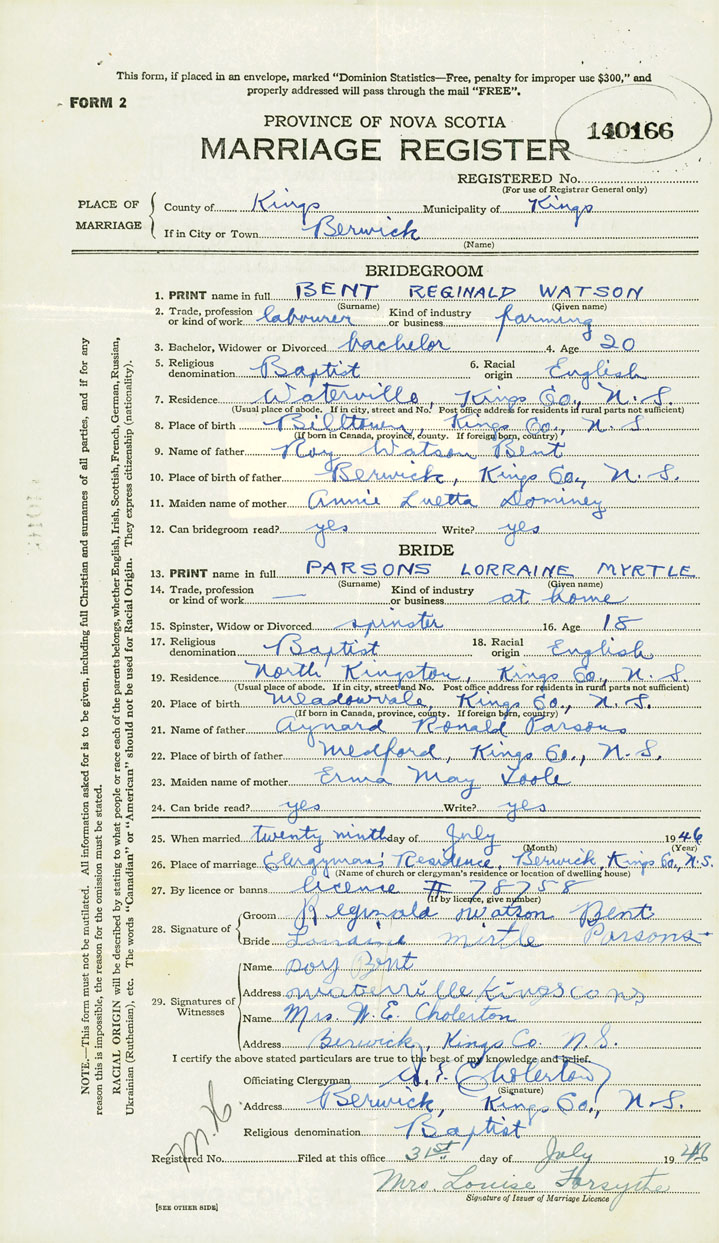 This form, if placed in an envelope, marked “Dominion Statistics—Free, penalty for improper use $300,” and
properly addressed will pass through the mail “FREE”.
FORM 2
140166
PROVINCE OF NOVA SCOTIA
MARRIAGE REGISTER
REGISTERED No.
(For use of Registrar General only)
PLACE OF MARRIAGE
County of Kings Municipality of Kings
If in City or Town Berwick
(Name)
BRIDEGROOM
1. PRINT name in full BENT REGINALD WATSON
(Surname) (Given name)
2. Trade, profession or kind of work labourer Kind of industry or business farming
3. Bachelor, Widower or Divorced bachelor 4. Age 20
5. Religious denomination Baptist 6. Racial origin English
7. Residence Waterville, Kings Co., N.S.
(Usual place of abode. If in city, street and No. Post office address for residents in rural parts not sufficient)
8. Place of birth Billtown, Kings Co., N.S.
(If born in Canada, province, county. If foreign born, country)
9. Name of father Roy Watson Bent
10. Place of birth of father Berwick, Kings Co., N.S.
11. Maiden name of mother Annie Luetta Dominey
12. Can bridegroom read? yes Write? yes
BRIDE
13. PRINT name in full PARSONS LORRAINE MYRTLE
(Surname) (Given name)
14. Trade, profession or kind of work — Kind of industry or business at home
15. Spinster, Widow or Divorced spinster 16. Age 18
17. Religious denomination Baptist 18. Racial origin English
19. Residence North Kingston, Kings Co., N.S.
(Usual place of abode. If in city, street and No. Post office address for residents in rural parts not sufficient)
20. Place of birth Meadowvale, Kings Co., N.S.
(If born in Canada, province, county. If foreign born, country)
21. Name of father Aynard Ronald Parsons
22. Place of birth of father Medford, Kings Co., N.S.
23. Maiden name of mother Erma May Toole
24. Can bride read? yes Write? yes
25. When married twenty ninth day of July 1946
(Month) (Year)
26. Place of marriage Clergyman's Residence, Berwick, Kings Co., N.S.
(Name of church or clergyman's residence or location of dwelling house)
27. By licence or banns license # 78758
(If by licence, give number)
28. Signature of
Groom Reginald Watson Bent
Bride Lorraine Mirtle Parsons
29. Signatures of Witnesses
Name Bent
Address waterville Kings co ns
Name Mrs. W. E. Cholerton
Address Berwick, Kings Co. N.S.
I certify the above stated particulars are true to the best of my knowledge and belief.
Officiating Clergyman W. E. Cholerton
(Signature)
Address Berwick, Kings Co., N.S.
Religious denomination Baptist
Registered No. Filed at this office 31st day of July 1946
Mrs. Louise Forsythe
Signature of Issuer of Marriage Licence
[SEE OTHER SIDE]
NOTE.—This form must not be mutilated. All information asked for is to be given, including full Christian and surnames of all parties, and if for any
reason this is impossible, the reason for the omission must be stated.
RACIAL ORIGIN will be described by stating to what people or race each of the parents belongs, whether English, Irish, Scottish, French, German, Russian,
Ukrainian (Ruthenian), etc. The words “Canadian” or “American” should not be used for Racial Origin. They express citizenship (nationality).